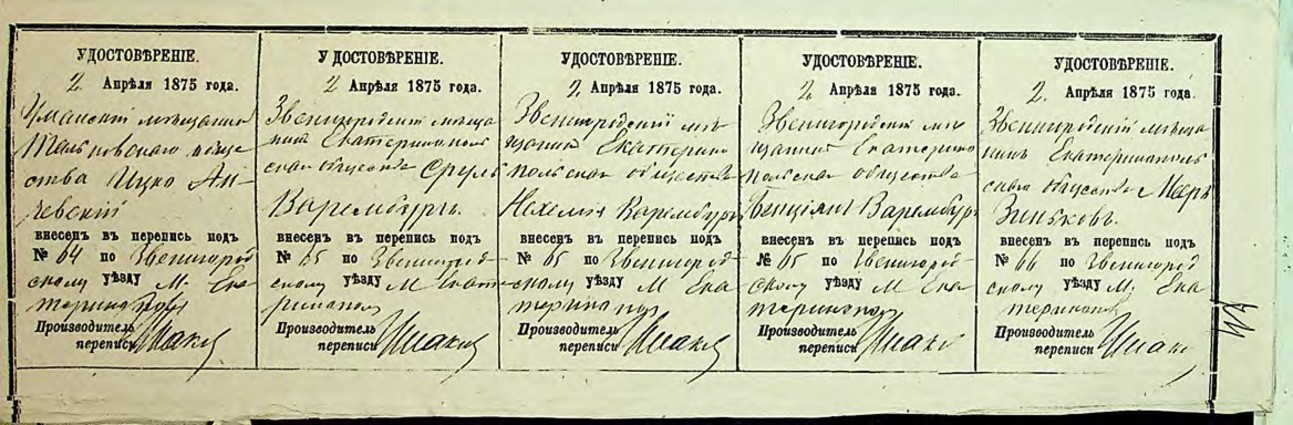 УДОСТОВѢРЕНІЕ.
2 Апрѣля 1875 года.
Уманскій мѣщанинъ
Тальковскаго обще
ства Ицко
внесенъ въ перепись подъ
№ 64 по Звенигород
скому уѣзду М. Ека
теринопол
Производитель
переписи
УДОСТОВѢРЕНІЕ.
2 Апрѣля 1875 года.
Звенигородскій мѣща
нинъ Екатеринополь
скаго общества Сруль
Варембургъ.
внесенъ въ перепись подъ
№ 65 по Звенигород
скому уѣзду М Екате
ринопол
Производитель
переписи
УДОСТОВѢРЕНІЕ.
2 Апрѣля 1875 года.
Звенигородскій мѣ
щанинъ Екатерино
польскаго общества
Нахемія Варембургъ
внесенъ въ перепись подъ
№ 65 по Звенигород
скому уѣзду М Ека
теринопол
Производитель
переписи
УДОСТОВѢРЕНІЕ.
2 Апрѣля 1875 года.
Звенигородскій мѣ
щанинъ Екатерино
польскаго общества
Бенціянъ Варембургъ
внесенъ въ перепись подъ
№ 65 по Звенигород
скому уѣзду М Ека
теринопол
Производитель
переписи
УДОСТОВѢРЕНІЕ.
2 Апрѣля 1875 года.
Звенигородскій мѣща
нинъ Екатеринополь
скаго общества Мееръ
Зиньковъ.
внесенъ въ перепись подъ
№ 66 по Звенигород
скому уѣзду М. Ека
теринопол
Производитель
переписи